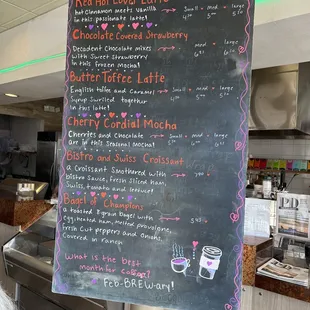 Red Hot Lover Latte
hot Cinnamon meets Vanilla
in this passionate latte!
small
med
large
Chocolate Covered Strawberry
Decadent Chocolate mixes
with Sweet Strawberry
in this frozen mocha!
med
large
Butter Toffee Latte
English toffee and Caramel
Syrup Swirled together
in this latte!
small
med
large
Cherry Cordial Mocha
Cherries and Chocolate
in this Seasonal mocha!
small
med
large
Bistro and Swiss Croissant
a Croissant Smothered with
bistro Sauce, fresh sliced ham,
Swiss, tomato and lettuce!
Bagel of Champions
a toasted 8 grain bagel with
egg, honey ham, melted provolone,
fresh Cut peppers and onions
Covered in ranch!
What is the best
month for coffee?
Feb-BREW-ary!